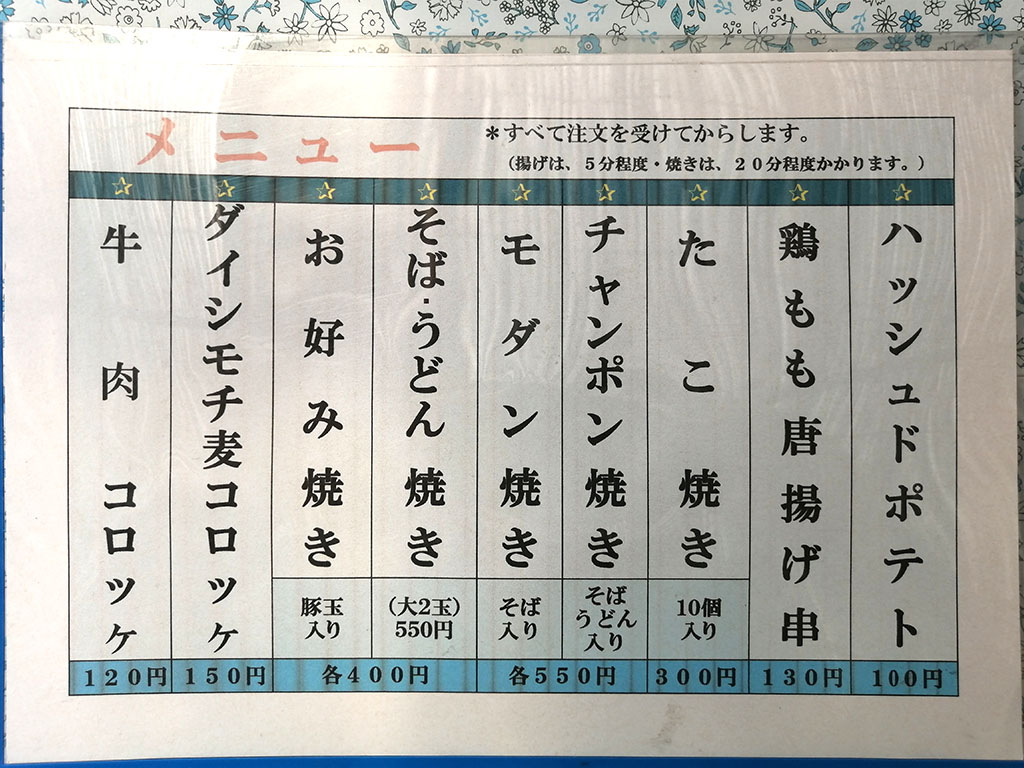 メニュー
＊すべて注文を受けてからします。
（揚げは、５分程度・焼きは、２０分程度かかります。）
ハッシュドポテト
100円
鶏もも唐揚げ串
１３０円
たこ焼き
10個
入り
３００円
チャンポン焼き
そば
うどん
入り
モダン焼き
そば
入り
各５５０円
そば・うどん焼き
（大２玉）
550円
お好み焼き
豚玉
入り
各４００円
ダイシモチ麦コロッケ
１５０円
牛肉コロッケ
１２０円